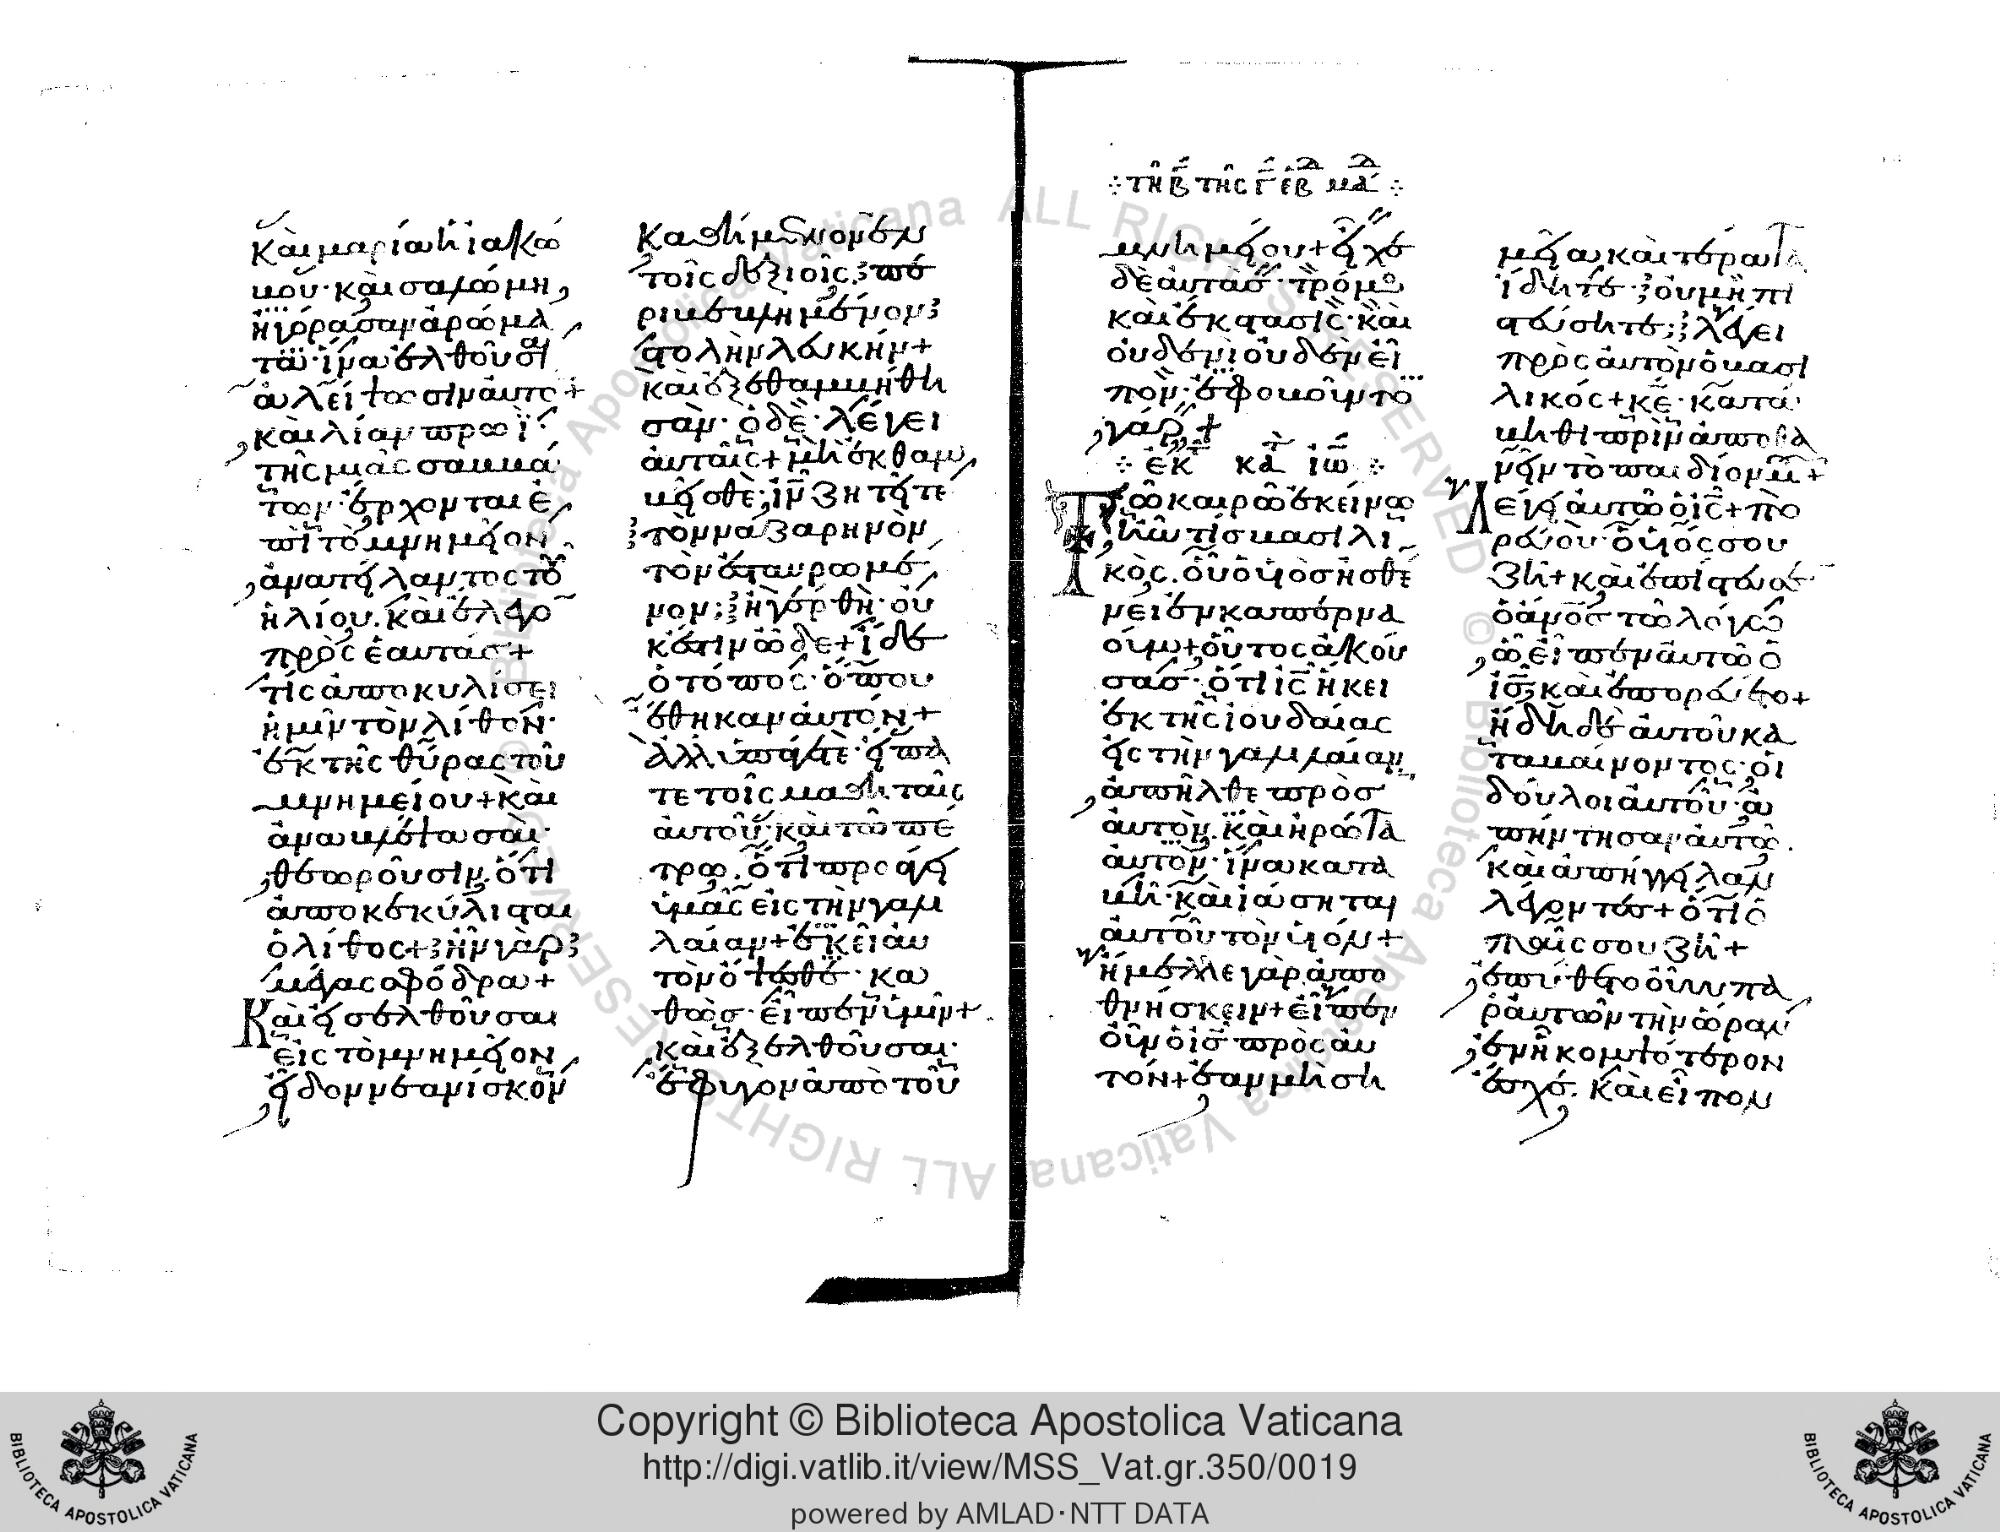 καὶ μαρία ἡ ἰακώ
βου· καὶ σαλώμη,
ἠγόρασαν ἀρώμα
τα· ἵνα ἐλθοῦσαι
ἀλείψωσιν αὐτό+
καὶ λίαν πρωῒ
τῆς μιᾶς σαββά
των· ἔρχονται ἐ
πὶ τὸ μνημεῖον
ἀνατείλαντος τοῦ
ἡλίου. καὶ ἔλεγο
πρὸς ἑαυτάσ+
τίς ἀποκυλίσει
ἡμῖν τὸν λίθον·
ἐκ τῆς θύρας τοῦ
μνημείου+ καὶ
ἀναβλέψασαι·
θεωροῦσιν. ὅτι
ἀποκεκύλισται
ὁ λίθος+ ἦν γὰρ
μέγας σφόδρα+
Καὶ εἰσελθοῦσαι
εἰς τὸ μνημεῖον
εἶδον νεανίσκον
καθήμενον ἐν
τοῖς δεξιοῖς. πε
ριβεβλημένον
στολὴν λευκήν+
καὶ ἐξεθαμβήθη
σαν· ὁ δὲ· λέγει
αὐταῖς+ μὴ ἐκθαμ
βεῖσθε· ἰν ζητεῖτε
τὸν ναζαρηνὸν
τὸν ἐσταυρωμέ
νον; ἠγέρθη· οὐ
κ ἔστιν ὧδε+ ἴδε
ὁ τόπος· ὅπου
ἔθηκαν αὐτόν+
ἀλλ ὑπάγετε· εἴπα
τε τοῖς μαθηταῖς
αὐτοῦ· καὶ τῶ πέ
τρω. ὅτι προάγει
ὑμᾶς εἰς τὴν γαλι
λαίαν+ ἐκεῖ αὐ
τὸν ὄψεσθε· κα
θὼσ· εἶπεν ὑμῖν+
καὶ ἐξελθοῦσαι·
ἔφυγον ἀπὸ τοῦ
τῆ β τῆς γ εβ μα
μνημείου+ εἶχε
δὲ αὐτὰσ· τρόμο
καὶ ἔκστασις· καὶ
οὐδενὶ οὐδὲν εἶ
πον· ἐφοβοῦντο
γάρ+
ἐκ κα ἰω
Τῶ καιρῶ ἐκείνω
ἦν τίσ βασιλι
κὸς. οὗ ὁ υἱὸσ ἠσθέ
νει ἐν καπερνα
ούμ+ οὗτος ἀκού
σασ· ὅτι ις ἥκει
ἐκ τῆς ἰουδαίας
εἰς τὴν γαλιλαίαν
ἀπῆλθε πρὸσ
αὐτὸν. καὶ ἠρώτα
αὐτὸν· ἵνα κατα
βῆ· καὶ ἰάσηται
αὐτοῦ τὸν υἱόν+
ἤμελλε γὰρ ἀπο
θνήσκειν+ εἶπεν
οὖν ὁ ις πρὸς αὐ
τόν+ ἐὰν μὴ ση
μεῖα καὶ τέρατα
ἴδητε· οὐ μὴ πι
στεύσητε; λέγει
πρὸς αὐτὸν ὁ βασι
λικός+ κε· κατά
βηθι πρὶν ἀποθα
νεῖν τὸ παιδίον μου+
Λέγει αὐτῶ ὁ ις+ πο
ρεύου· ὁ υἱός σου
ζῆ+ καὶ ἐπίστευσε
ὁ ἄνος τῶ λόγω
ὧ εἶπεν αὐτῶ ὁ
ις· καὶ ἐπορεύετο+
ἤδη δὲ αὐτοῦ κα
ταβαίνοντος· οἱ
δοῦλοι αὐτοῦ· ἀ
πήντησαν αὐτῶ.
καὶ ἀπήγγειλαν
λέγοντεσ+ ὅτι ὁ
παῖς σου ζῆ+
ἐπύθετο οὖν πα
ρ αὐτῶν τὴν ὥραν
ἐν ἧ κομψότερον
ἔσχε. καὶ εἶπον
Copyright © Biblioteca Apostolica Vaticana
http://digi.vatlib.it/view/MSS_Vat.gr.350/0019
powered by AMLAD·NTT DATA
BIBLIOTECA APOSTOLICA VATICANA
BIBLIOTECA APOSTOLICA VATICANA